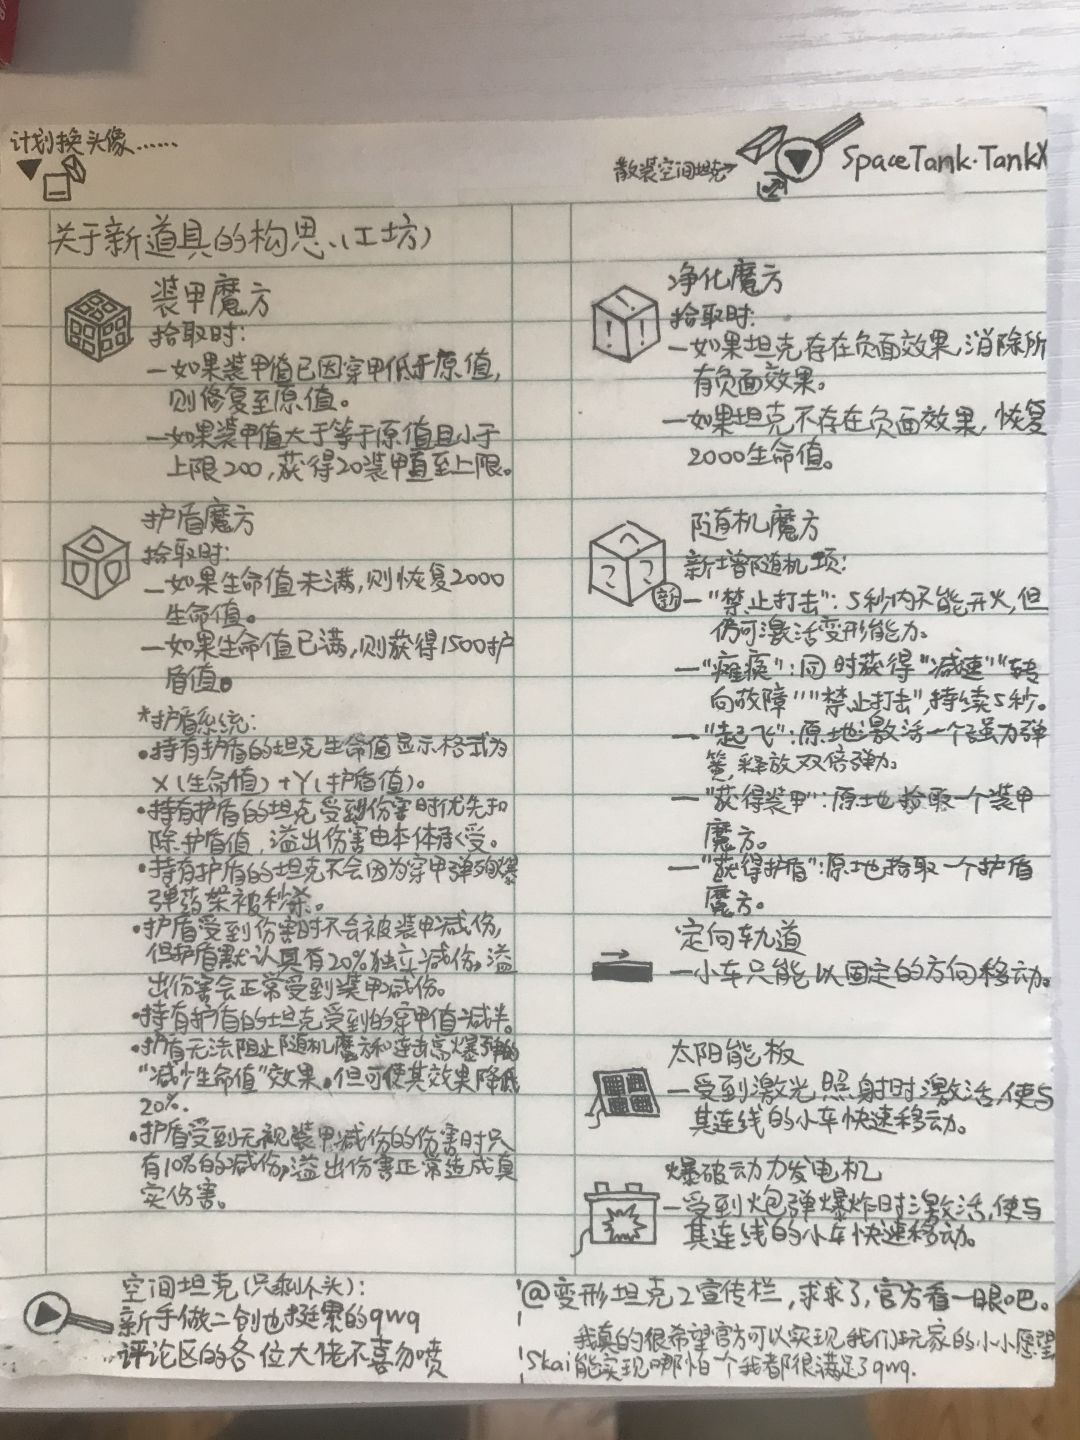 计划换头像……
散装空间坦克→
SpaceTank·TankX
关于新道具的构思、(工坊)
装甲魔方
拾取时:
—如果装甲值已因穿甲低于原值,
则修复至原值。
—如果装甲值大于等于原值且小于
上限200,获得20装甲直至上限。
护盾魔方
拾取时:
—如果生命值未满,则恢复2000
生命值。
—如果生命值已满,则获得1500护
盾值。
*护盾系统:
•持有护盾的坦克生命值显示格式为
X(生命值)+Y(护盾值)。
•持有护盾的坦克受到伤害时优先扣
除护盾值,溢出伤害由本体承受。
•持有护盾的坦克不会因为穿甲弹殉爆
弹药架被秒杀。
•护盾受到伤害时不会被装甲减伤,
但护盾默认具有20%独立减伤,溢
出伤害会正常受到装甲减伤。
•持有护盾的坦克受到的穿甲值减半。
•护盾无法阻止随机魔方和连击高爆弹的
“减少生命值”效果。但可使其效果降低
20%.
•护盾受到无视装甲减伤的伤害时只
有10%的减伤,溢出伤害正常造成真
实伤害。
净化魔方
拾取时:
—如果坦克存在负面效果,消除所
有负面效果。
—如果坦克不存在负面效果,恢复
2000生命值。
随机魔方
新增随机项:
新—“禁止打击”:5秒内不能开火,但
仍可激活变形能力。
—“瘫痪”:同时获得“减速”“转
向故障”“禁止打击”,持续5秒。
—“起飞”:原地激活一个强力弹
簧,释放双倍弹力。
—“获得装甲”:原地拾取一个装甲
魔方。
—“获得护盾”:原地拾取一个护盾
魔方。
定向轨道
—小车只能以固定的方向移动。
太阳能板
—受到激光照射时激活,使与
其连线的小车快速移动。
爆破动力发电机
—受到炮弹爆炸时激活,使与
其连线的小车快速移动。
空间坦克(只剩个头):
新手做二创也挺累的qwq
评论区的各位大佬不喜勿喷
@变形坦克2宣传栏,求求了,官方看一眼吧。
我真的很希望官方可以实现我们玩家的小小愿望
Skai能实现哪怕一个我都很满足了qwq.